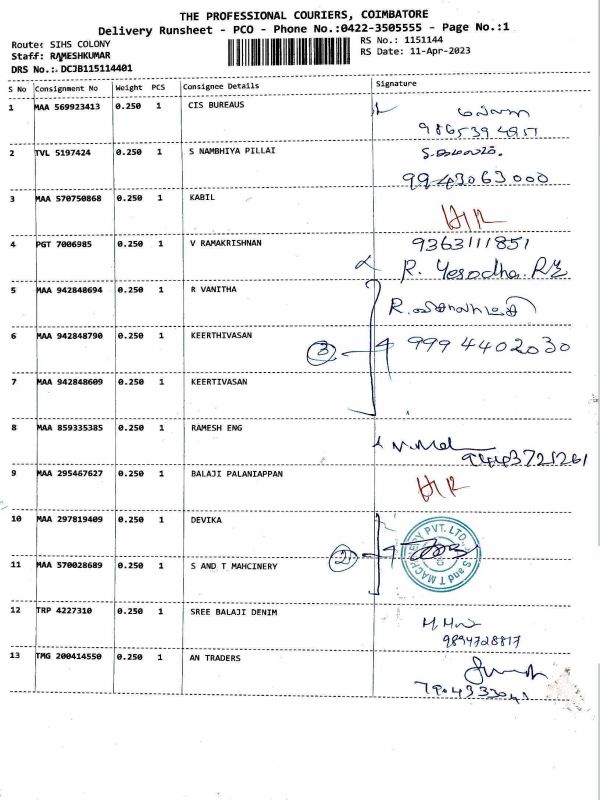 THE PROFESSIONAL COURIERS, COIMBATORE
Delivery Runsheet - PCO - Phone No.:0422-3505555 - Page No.:1
Route: SIHS COLONY
RS No.: 1151144
Staff: RAMESHKUMAR
RS Date: 11-Apr-2023
DRS No.: DCJB115114401
S No Consignment No Weight PCS Consignee Details Signature
1 MAA 569923413 0.250 1 CIS BUREAUS
2 TVL 5197424 0.250 1 S NAMBHIYA PILLAI
9943063000
3 MAA 570750868 0.250 1 KABIL
4 PGT 7006985 0.250 1 V RAMAKRISHNAN 9363111851
R. Yesodha
5 MAA 942848694 0.250 1 R VANITHA
6 MAA 942848790 0.250 1 KEERTHIVASAN 3 9994402030
7 MAA 942848609 0.250 1 KEERTIVASAN
8 MAA 859335385 0.250 1 RAMESH ENG
9443721261
9 MAA 295467627 0.250 1 BALAJI PALANIAPPAN
10 MAA 297819409 0.250 1 DEVIKA
2 S and T MACHINERY PVT. LTD.
11 MAA 570028689 0.250 1 S AND T MAHCINERY
12 TRP 4227310 0.250 1 SREE BALAJI DENIM
9894728817
13 TMG 200414550 0.250 1 AN TRADERS